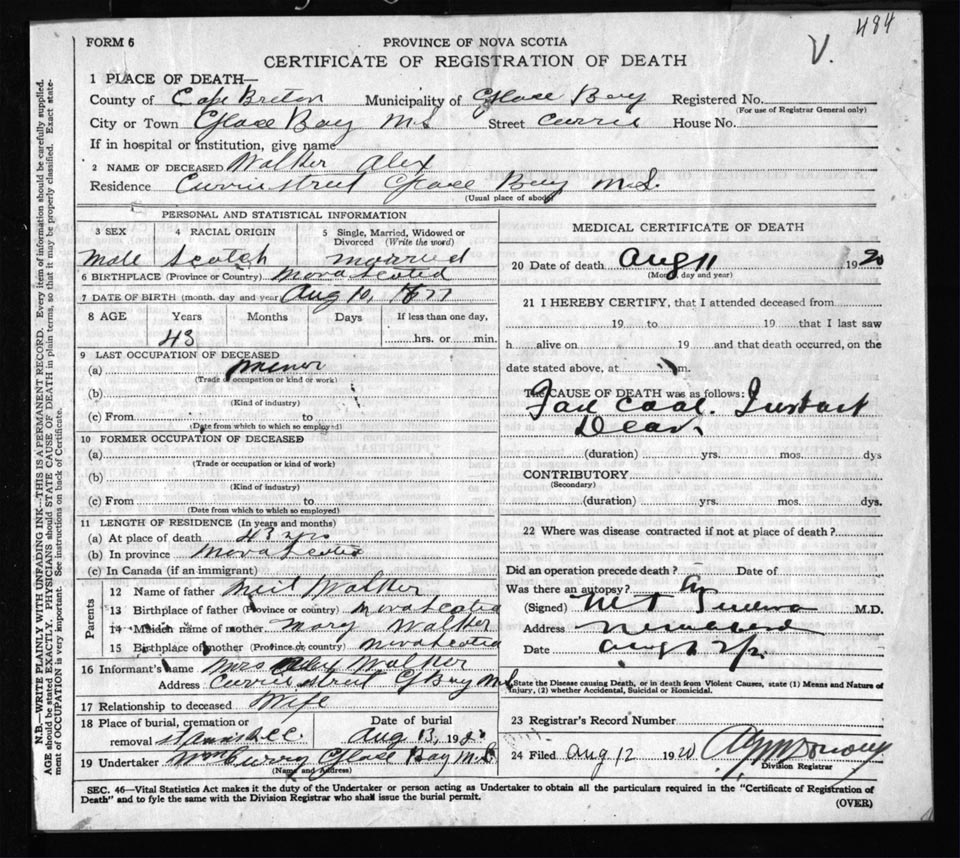 484
V.
FORM 6
PROVINCE OF NOVA SCOTIA
CERTIFICATE OF REGISTRATION OF DEATH
1 PLACE OF DEATH—
County of Cape Breton Municipality of Glace Bay Registered No.
(For use of Registrar General only)
City or Town Glace Bay N.S Street Currie House No.
If in hospital or institution, give name
2 NAME OF DECEASED Walker Alex
Residence Currie street Glace Bay N.S.
(Usual place of abode)
PERSONAL AND STATISTICAL INFORMATION
3 SEX 4 RACIAL ORIGIN 5 Single, Married, Widowed or Divorced (Write the word)
Male Scotch married
6 BIRTHPLACE (Province or Country) Nova Scotia
7 DATE OF BIRTH (month, day and year) Aug 10, 1877
8 AGE Years Months Days If less than one day,
43 hrs. or min.
9 LAST OCCUPATION OF DECEASED
(a) miner
(Trade or occupation or kind or work)
(b)
(Kind of industry)
(c) From to
(Date from which to which so employed)
10 FORMER OCCUPATION OF DECEASED
(a)
(Trade or occupation or kind of work)
(b)
(Kind of industry)
(c) From to
(Date from which to which so employed)
11 LENGTH OF RESIDENCE (In years and months)
(a) At place of death 43 yrs
(b) In province Nova Scotia
(c) In Canada (if an immigrant)
Parents
12 Name of father Neil Walker
13 Birthplace of father (Province or country) Nova Scotia
14 Maiden name of mother Mary Walker
15 Birthplace of mother (Province or country) Nova Scotia
16 Informant's name Mrs Walker
Address Currie street G Bay N.S
17 Relationship to deceased Wife
18 Place of burial, cremation or Date of burial
removal Aug 13, 192
19 Undertaker Curry Glace Bay N.S
(Name and Address)
MEDICAL CERTIFICATE OF DEATH
20 Date of death Aug 11 1920
(Month, day and year)
21 I HEREBY CERTIFY, that I attended deceased from
19 to 19 that I last saw
h alive on 19 and that death occurred, on the
date stated above, at m.
The CAUSE OF DEATH was as follows:
Coal. Instant
Death
(duration) yrs. mos. dys
CONTRIBUTORY
(Secondary)
(duration) yrs. mos. dys.
22 Where was disease contracted if not at place of death?
Did an operation precede death? Date of
Was there an autopsy?
(Signed) M.D.
Address
Date
State the Disease causing Death, or in death from Violent Causes, state (1) Means and Nature of
Injury, (2) whether Accidental, Suicidal or Homicidal.
23 Registrar's Record Number
24 Filed Aug 12 1920
Division Registrar
SEC. 46—Vital Statistics Act makes it the duty of the Undertaker or person acting as Undertaker to obtain all the particulars required in the "Certificate of Registration of
Death" and to fyle the same with the Division Registrar who shall issue the burial permit.
(OVER)
N.B.—WRITE PLAINLY WITH UNFADING INK—THIS IS A PERMANENT RECORD. Every item of information should be carefully supplied.
AGE should be stated EXACTLY. PHYSICIANS should STATE CAUSE OF DEATH in plain terms, so that it may be properly classified. Exact state-
ment of OCCUPATION is very important. See instructions on back of Certificate.